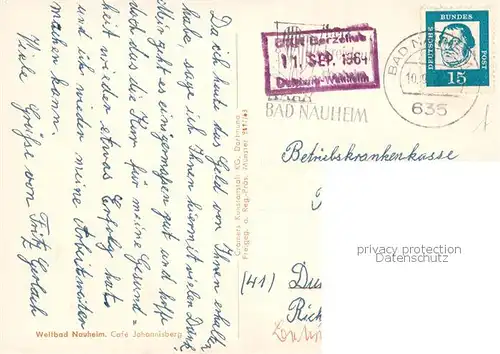 Da ich heute das Geld von Ihnen erhalten
habe sage ich Ihnen hiermit vielen Dank
Mir geht es einigermaßen gut und hoffe
doch das die Kur für meine Gesund-
heit wieder etwas Erfolg hat
und ich wieder meine Arbeit weiter
machen kann.
Viele Grüße von Fritz Gerlach
Weltbad Nauheim. Café Johannisberg
Cramers Kunstanstalt KG, Dortmund
Freigeg. d. Reg.-Präs. Münster
11. SEP. 1964
BAD NAUHEIM
BAD
635
DEUTSCHE BUNDESPOST
15
Betriebskrankenkasse
(41)
privacy protection
Datenschutz